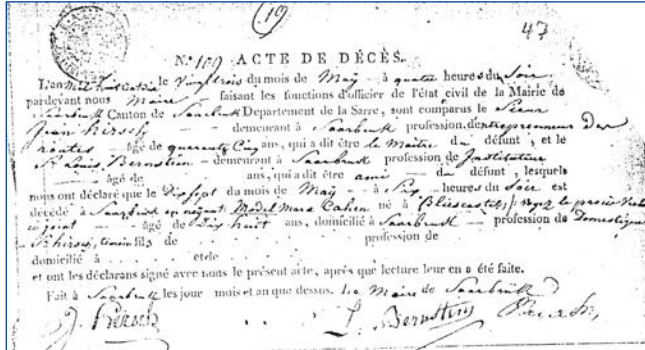 (19)
47
N.º 109 ACTE DE DÉCÈS.
L'an mil huit cent le Vingt trois du mois de May – à quatre heures du Soir
pardevant nous Maire faisant les fonctions d'officier de l'état civil de la Mairie de
Saarbruck Canton de Saarbruck Departement de la Sarre, sont comparus le Sieur
Jean Hirsch – demeurant à Saarbruck profession d'entrepreneur des
– âgé de quarante Cinq ans, qui a dit être le Maître du défunt, et le
Sr Louis Bernstein – demeurant à Saarbruck profession de Instituteur
– âgé de ans, qui a dit être ami – du défunt, lesquels
nous ont déclaré que le Dix sept du mois de May – à Six – heures du Soir est
décédé à Saarbruck en Model Marx Cahen né à Bliescastel, voyez le procès
– âgé de Dix huit ans, domicilié à Saarbruck – profession de Domestique
Hirsch, fils de profession de
domicilié à et de
et ont les déclarans signé avec nous le présent acte, après que lecture leur en a été faite.
Fait à Saarbruck les jour mois et an que dessus. Le Maire de Saarbruck
J. Hirsch L. Bernstein